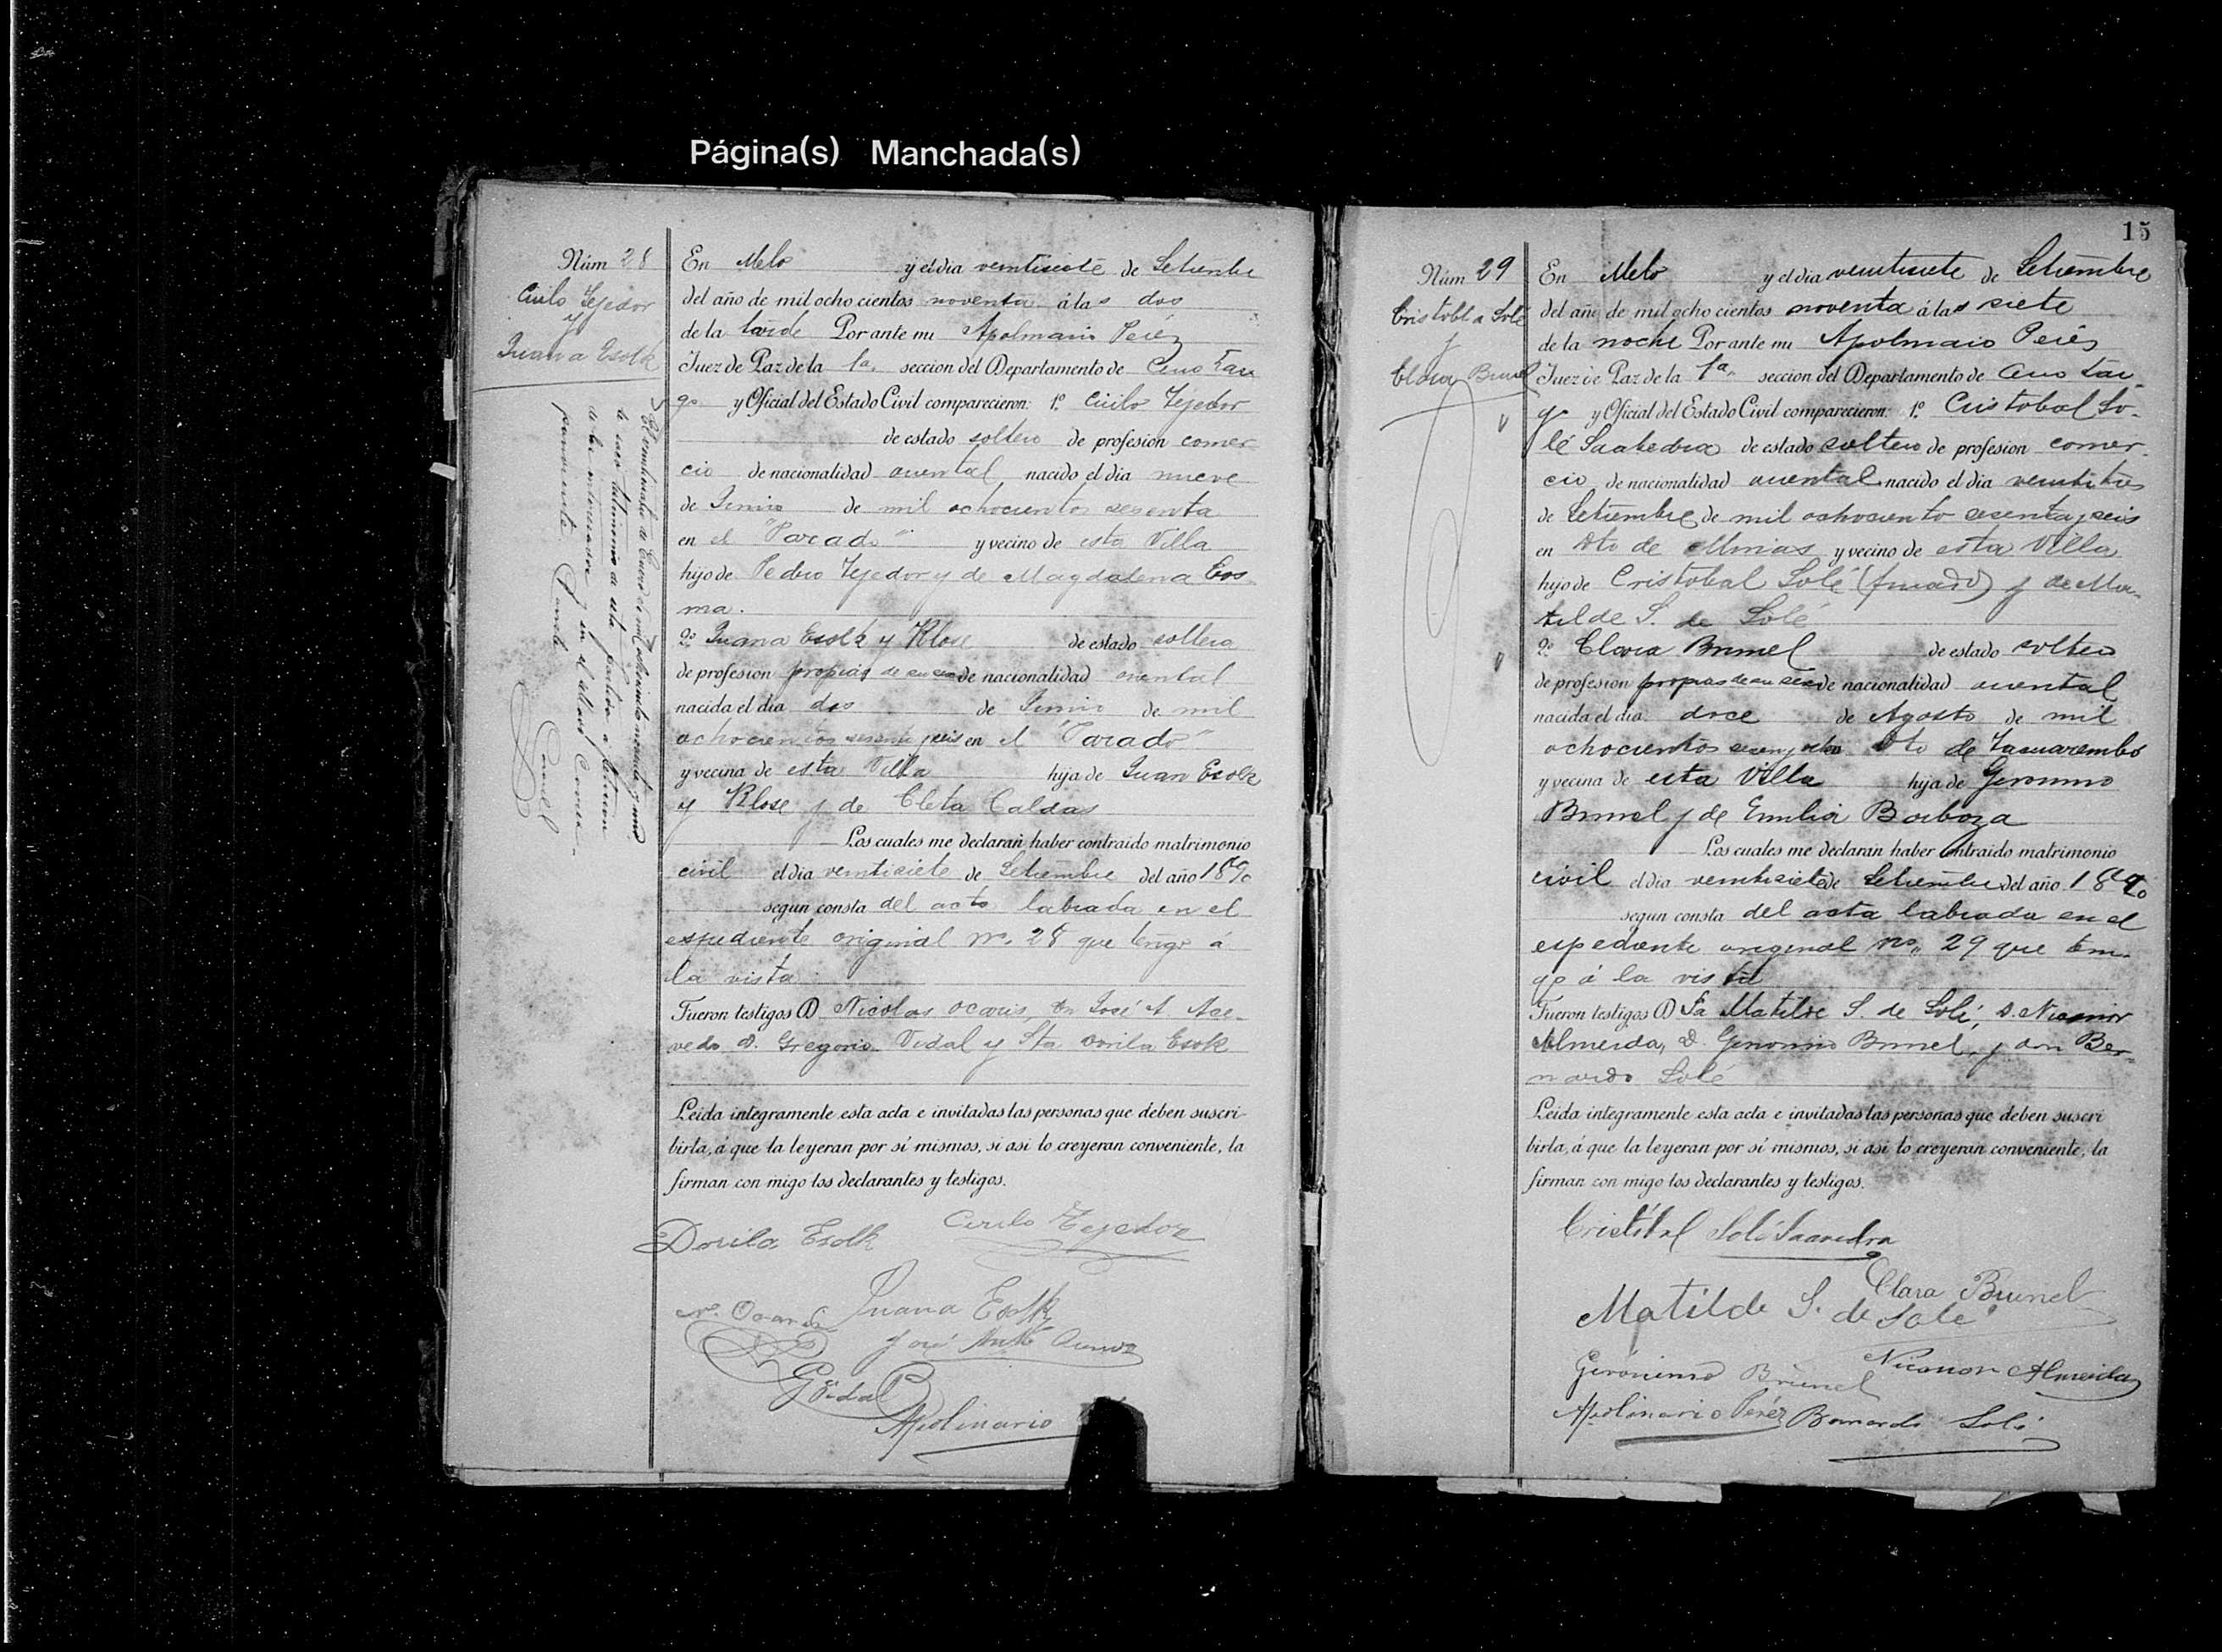 Página(s) Manchada(s)
Núm 28
Cirilo Tejedor
y
Juana Esolk
En Melo y el dia veintisiete de Setiembre
del año de mil ocho cientos noventa á las dos
de la tarde Por ante mi Apolinario Peréz
Juez de Paz de la 1a. seccion del Departamento de Cerro Lar
go y Oficial del Estado Civil comparecieron: 1º Cirilo Tejedor
de estado soltero de profesion comer
cio de nacionalidad oriental nacido el dia nueve
de Junio de mil ochocientos sesenta
en el "Parado" y vecino de esta Villa
hijo de Pedro Tejedor y de Magdalena
ma.
2º Juana Esolk y Klose de estado soltera
de profesion propias de su sexo de nacionalidad oriental
nacida el dia dos de Junio de mil
ochocientos sesenta y seis en el "Parado"
y vecina de esta Villa hija de Juan Esolk
y Klose y de Cleta Caldas
Los cuales me declaran haber contraido matrimonio
civil el dia veintisiete de Setiembre del año 1890
segun consta del acta labrada en el
espediente original no. 28 que tengo á
la vista
Fueron testigos D Nicolas Ocaris, Dn José A. Ace-
vedo D. Gregorio Vidal y Sta Dorila Esolk
Leida integramente esta acta e invitadas las personas que deben suscri-
birla, á que la leyeran por sí mismos, si asi lo creyeran conveniente, la
firman con migo los declarantes y testigos.
Dorila Esolk Cirilo Tejedor
Juana Esolk
GVidal
Apolinario
El veinticuatro de Enero de mil ochocientos noventa y uno
de esta partida a peticion
de los interesados y en el sellado
Conste
15
Núm 29
Cristobl a Solé
y
Clara Brunel
En Melo y el dia veintisiete de Setiembre
del año de mil ocho cientos noventa á las siete
de la noche Por ante mi Apolinario Peréz
Juez de Paz de la 1a. seccion del Departamento de Cerro Lar-
go y Oficial del Estado Civil comparecieron: 1º Cristobal So-
lé Saabedra de estado soltero de profesion comer-
cio de nacionalidad oriental nacido el dia veintitres
de Setiembre de mil ochociento sesenta y seis
en Dto de Minas y vecino de esta Villa
hijo de Cristobal Solé (finado) y de Ma-
tilde S. de Solé
2º Clara Brunel de estado soltera
de profesion propias de su sexo de nacionalidad oriental
nacida el dia doce de Agosto de mil
ochocientos Dto de Tacuarembó
y vecina de esta Villa hija de Geronimo
Brunel y de Emilia Barboza
Los cuales me declaran haber contraido matrimonio
civil el dia veintisiete de Setiembre del año 1890
segun consta del acta labrada en el
espediente original no. 29 que ten-
go á la vista
Fueron testigos D Sa Matilde S. de Solé, D. Nicanor
Almeida, D. Geronimo Brunel, y don Ber-
nardo Solé
Leida integramente esta acta e invitadas las personas que deben suscri
birla, á que la leyeran por sí mismos, si asi lo creyeran conveniente, la
firman con migo los declarantes y testigos.
Cristóbal Solé Saavedra
Clara Brunel
Matilde S. de Solé
Gerónimo Brunel Nicanor Almeida
Apolinario Peréz Bernardo Solé